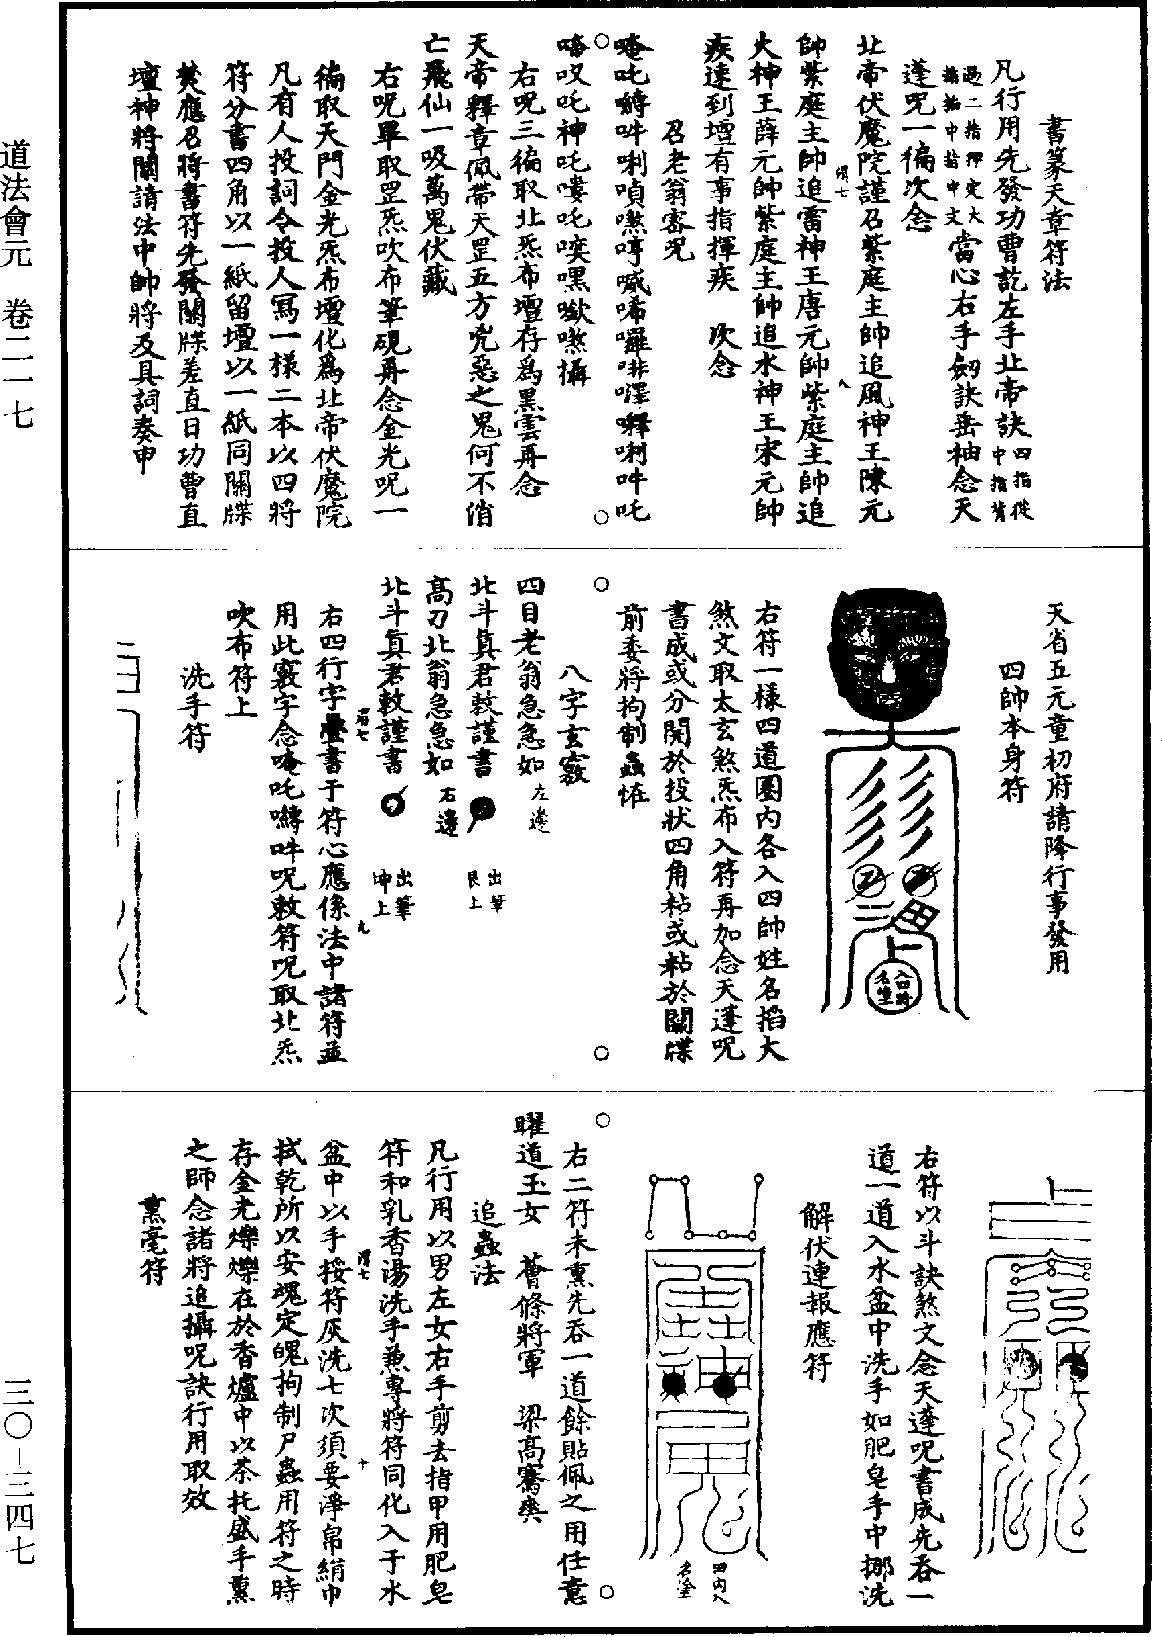 道法會元　卷二一七
三〇－三四七
書篆天章符法
凡行用先發功曹訖左手北帝訣四指從中指背
過二指押定大指掐中指中文當心右手劒訣垂袖念天
蓬呪一徧次念
北帝伏魔院謹召紫庭主帥追風神王陳元
帥紫庭主帥追雷神王唐元帥紫庭主帥追
火神王薛元帥紫庭主帥追水神王宋元帥
疾速到壇有事指揮疾　次念
召老翁密呪
唵吒嚩吽唎嗊嘫哼嘁唏囉啡嚁嚩唎吽吒
唵叹吒神吒嘍吒唉嘿嶽嘫攝
右呪三徧取北炁布壇存爲黑雲再念
天帝釋章佩帶天罡五方兇惡之鬼何不消
亡飛仙一吸萬鬼伏藏
右呪畢取罡炁吹布筆硯再念金光呪一
徧取天門金光炁布壇化爲北帝伏魔院
凡有人投詞令投人寫一樣二本以四將
符分書四角以一紙留壇以一紙同關牒
焚應召將書符先發關牒差直日功曹直
壇神將關請法中帥將及具詞奏申
天省五元童初府請降行事發用
四帥本身符
右符一樣四道圈內各入四帥姓名掐大
煞文取太玄煞炁布入符再加念天蓬呪
書成或分開於投狀四角粘或粘於關牒
前委將拘制蟲恠
八字玄竅
四目老翁急急如左邊
北斗眞君敕謹書　出筆艮上
高刀北翁急急如右邊
北斗眞君敕謹書　出筆坤上
右四行字疊書于符心應係法中諸符並
用此竅字念唵吒嚩吽呪敕符呪取北炁
吹布符上
洗手符
右符以斗訣煞文念天蓬呪書成先吞一
道一道入水盆中洗手如肥皂手中挪洗
解伏連報應符
田內入名全
右二符未熏先吞一道餘貼佩之用任意
曜道玉女　薈條將軍　梁高騫奭
追蟲法
凡行用以男左女右手剪去指甲用肥皂
符和乳香湯洗手兼專將符同化入于水
盆中以手挼符灰洗七次須要淨帛絹巾
拭乾所以安魂定魄拘制尸蟲用符之時
存金光爍爍在於香爐中以茶托盛手熏
之師念諸將追攝呪訣行用取效
熏毫符